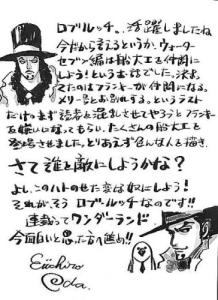 ロブルッチ、、活躍しましたね
今だから言えるというか、ウォーター
セブン編は船大工を仲間に
しよう!というお話でした。決
まってたのはフランキーが仲間になる。
メリー号とお別れする。というラスト
だけ。まず読者を混乱させてやろうとフランキー
を嫌いになってもらい、たくさんの船大工を
登場させました。とりあえず色んな人を描き、
さて誰を敵にしようかな?
よし、このハトのせた変な奴にしよう!
それが、そうロブルッチなのです!!
連載ってワンダーランド
今面白いと思った方へ進め!!
Eiichiro
Oda.